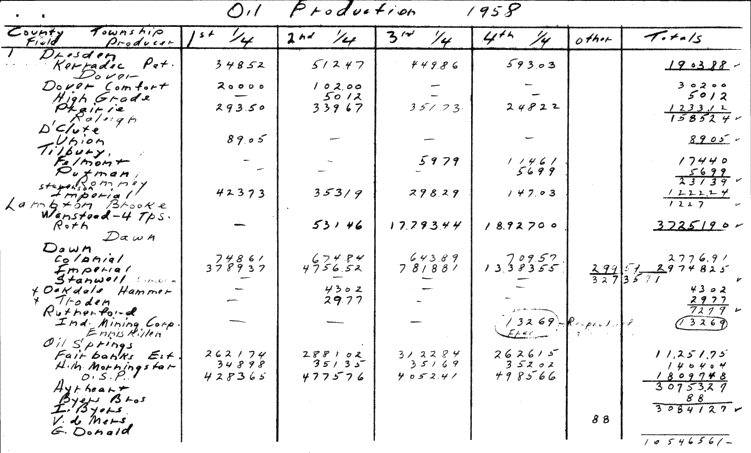 Oil Production 1958
County Township
Field Producer 1st 1/4 2nd 1/4 3rd 1/4 4th 1/4 other Totals
1 Dresden
Kerradec Pet. 34852 51247 44986 59303 190388
Dover
Dover Comfort 20000 10200 — — 30200
High Grade — 5012 — — 5012
Prairie 29350 33967 35173 24822 123312
Raleigh 158524
D'Clute
Union 8905 — — — 8905
Tilbury
Felmont - - 5979 11461 17440
Putman - - 5699 5699
Romney 23139
Stevenson
Imperial 42373 35319 29829 14703 122224
Lambton Brooke 1227
Wanstead-4 Tps.
Roth — 53146 17.79344 18.92700 3725190
Dawn
Dawn
Colonial 74861 67484 64389 70957 277691
Imperial 378937 475652 781881 1338355 2974825
Stanwell 3273571
+ Oakdale Hammer — 4302 — — 4302
+ Troden — 2977 — — 2977
Rutherford 7279
Ind. Mining Corp. — — — 13269 13269
Enniskillen
Oil Springs
Fairbanks Est. 262174 288102 312284 262615 11,25175
H.M Morningstar 34898 35135 35169 35202 140404
O.S.P. 428365 477576 405241 498566 1809748
Aytheart 3075327
Byers Bros 88
I. Byers 3084127
V. de Mers 88
G. Donald
10546561-